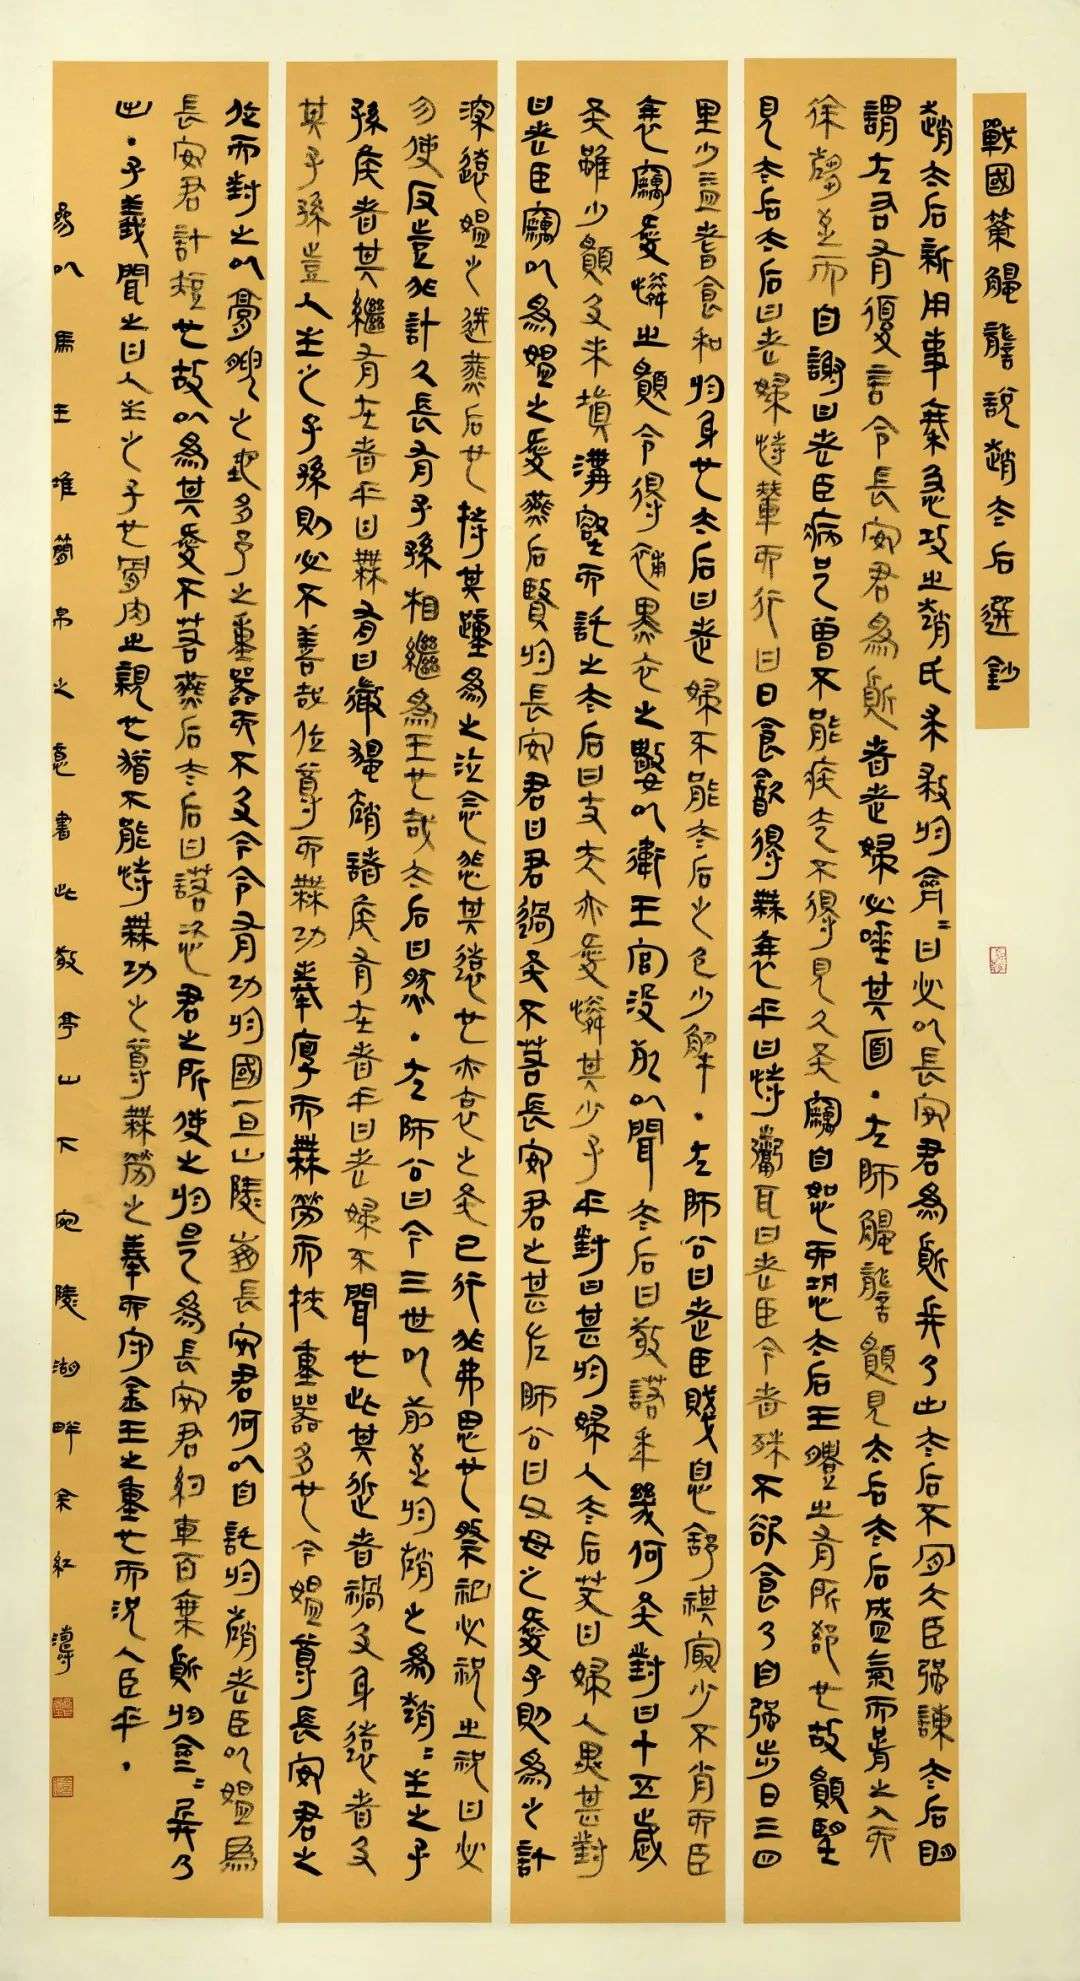 戰國策觸讋說趙太后選鈔
趙太后新用事秦急攻之趙氏求救於齊=曰必以長安君為質兵乃出太后不肎大臣強諫太后明
謂左右有復言令長安君為質者老婦必唾其面・左師觸讋願見太后太后盛氣而胥之入而
徐趨至而自謝曰老臣病足曾不能疾走不得見久矣竊自恕而恐太后玉體之有所郄也故願望
見太后太后曰老婦恃輦而行曰日食飲得無衰乎曰恃鬻耳曰老臣今者殊不欲食乃自強步日三四
里少益耆食和於身也太后曰老婦不能太后之色少解・左師公曰老臣賤息舒祺最少不肖而臣
衰竊愛憐之願令得補黑衣之數以衛王宮沒死以聞太后曰敬諾年幾何矣對曰十五歲
矣雖少願及未填溝壑而託之太后曰丈夫亦愛憐其少子乎對曰甚於婦人太后笑曰婦人異甚對
曰老臣竊以為媼之愛燕后賢於長安君曰君過矣不若長安君之甚左師公曰父母之愛子則為之計
深遠媼之送燕后也持其踵為之泣念悲其遠也亦哀之矣已行非弗思也祭祀必祝之祝曰必
勿使反豈非計久長有子孫相繼為王也哉太后曰然・左師公曰今三世以前至於趙之為趙=主之子
孫侯者其繼有在者乎曰無有曰微獨趙諸侯有在者乎曰老婦不聞也此其近者禍及身遠者及
其子孫豈人主之子孫則必不善哉位尊而無功奉厚而無勞而挾重器多也今媼尊長安君之
位而封之以膏腴之地多予之重器而不及今令有功於國一旦山陵崩長安君何以自託於趙老臣以媼為
長安君計短也故以為其愛不若燕后太后曰諾恣君之所使之於是為長安君約車百乘質於齊=兵乃
出・子義聞之曰人主之子也骨肉之親也猶不能恃無功之尊無勞之奉而守金玉之重也而況人臣乎・
以馬王堆簡帛之意書此敬亭山下宛陵湖畔余紅濤